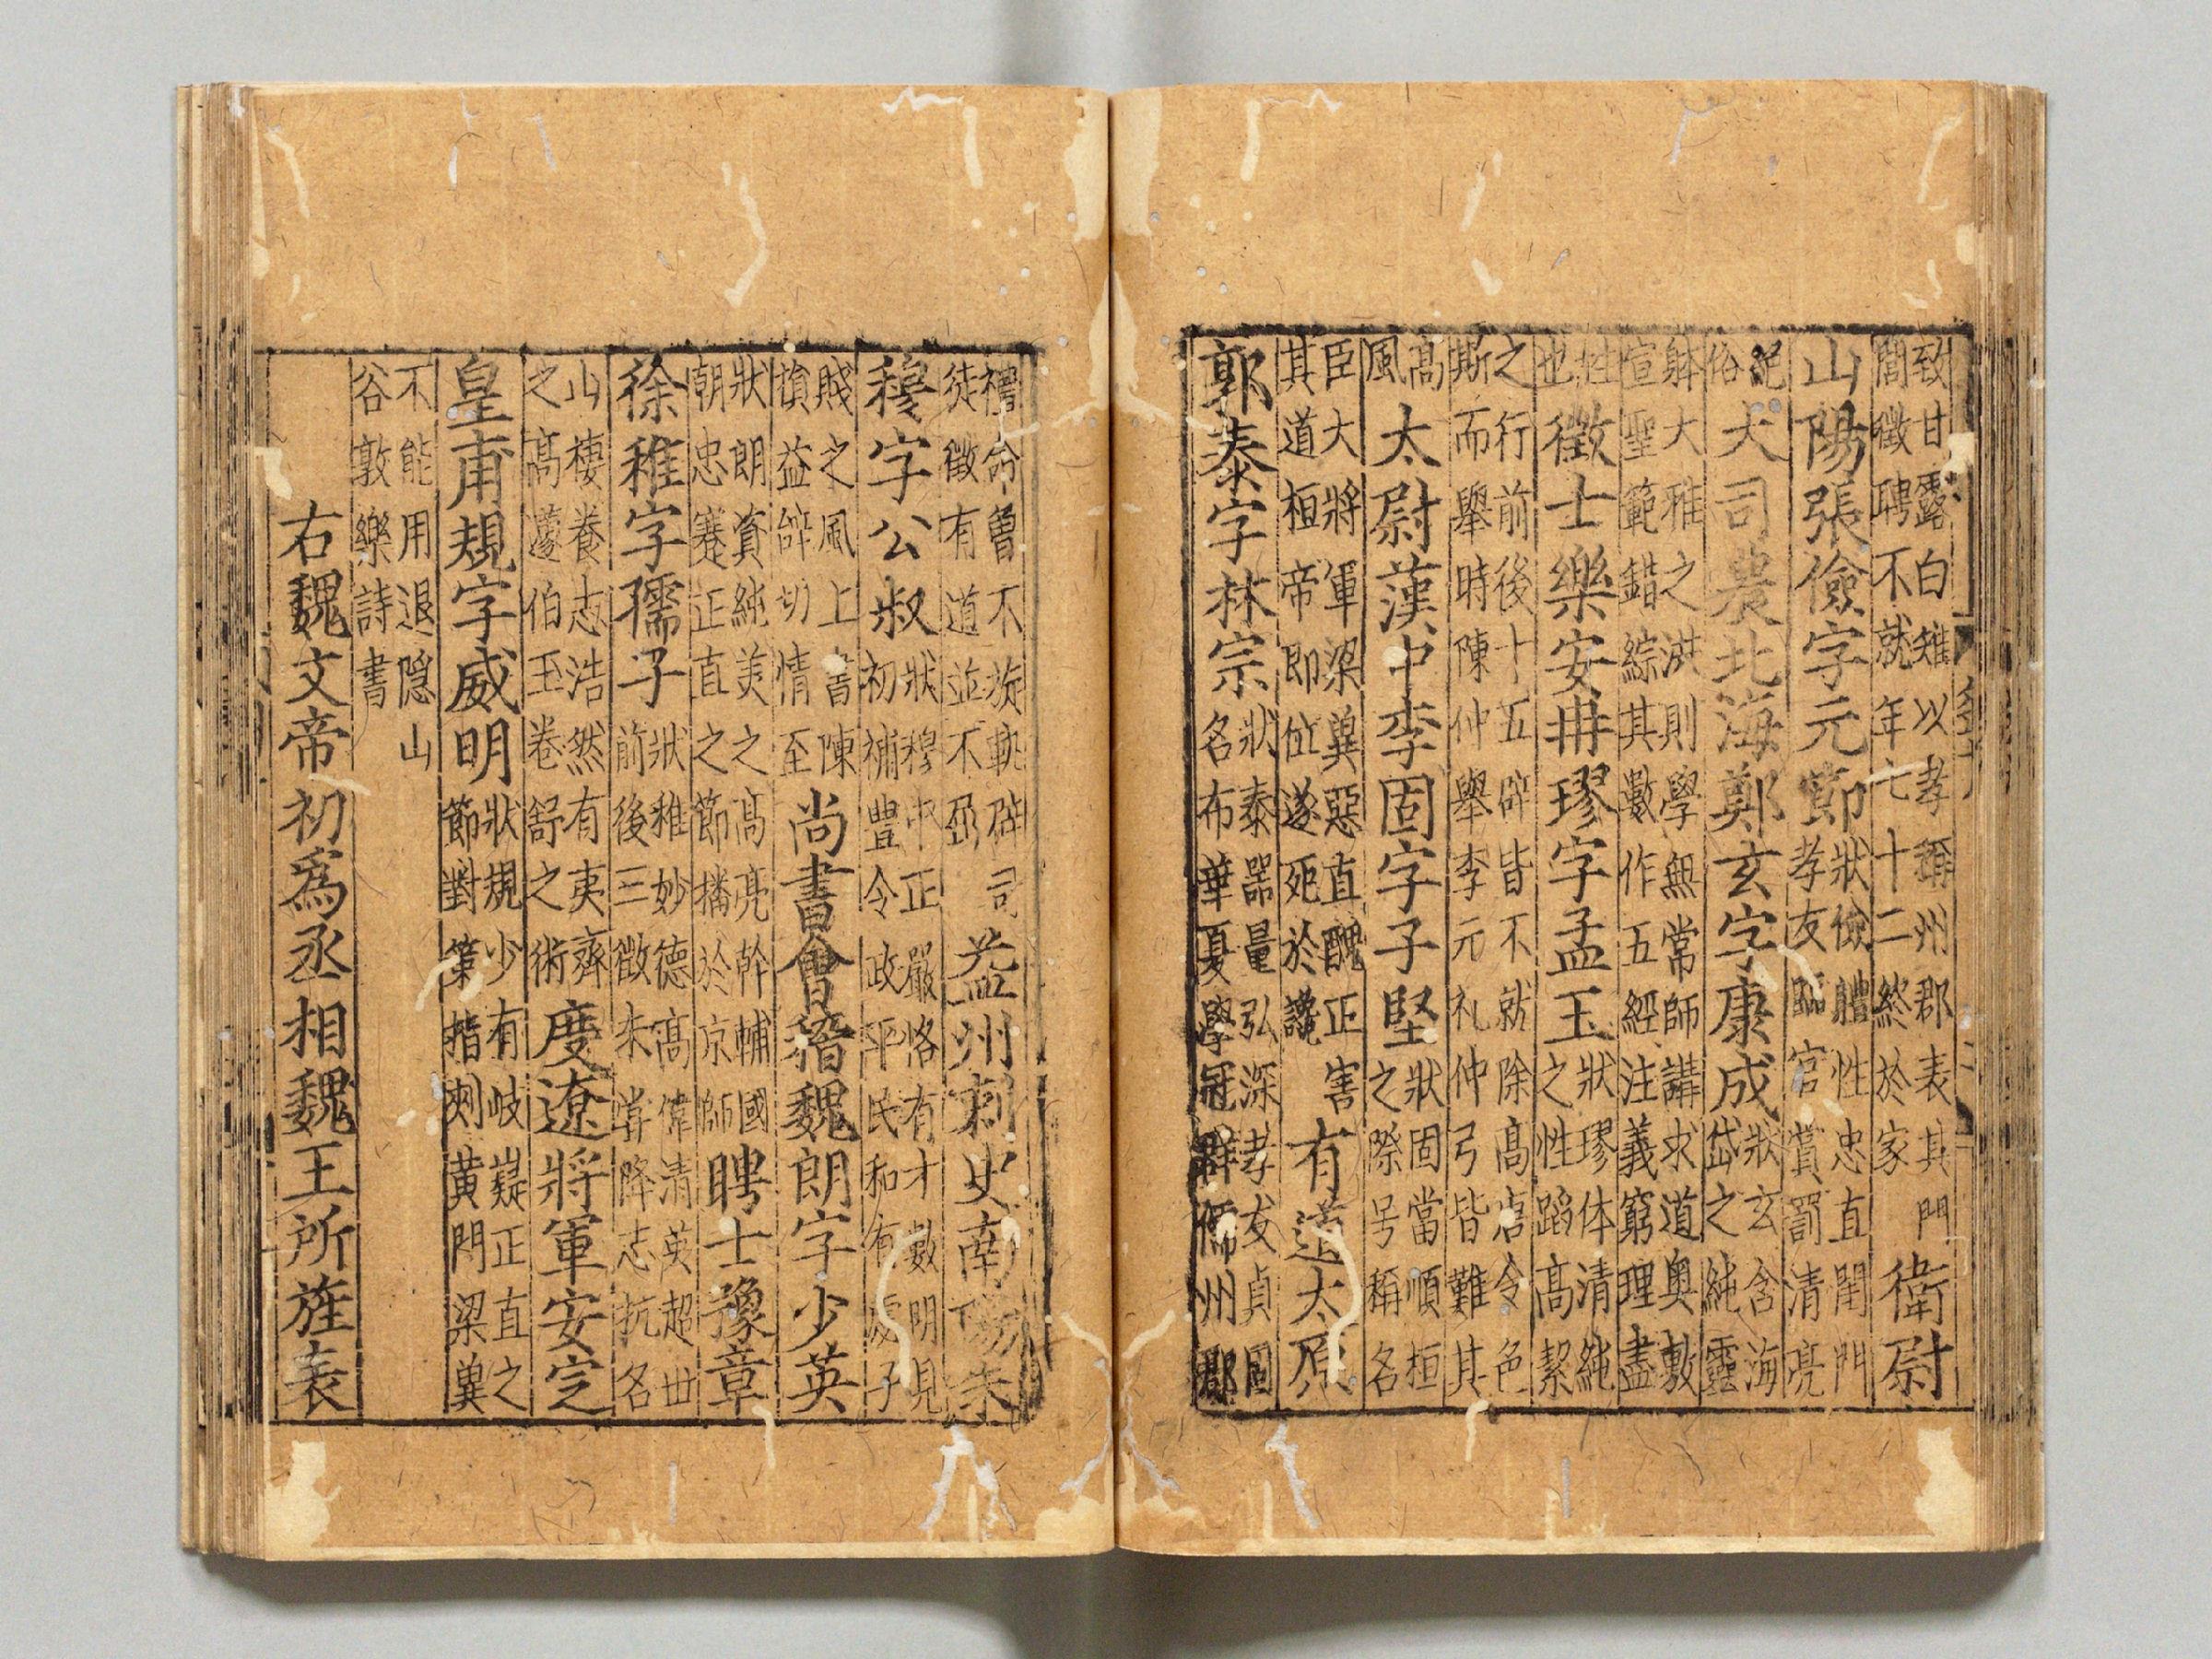 致甘露白雉以孝稱州郡表其門
閭徵聘不就年七十二終於家
衛尉
山陽張儉字元節
狀儉體性忠直閨門
孝友臨官賞罰清亮
大司農北海鄭玄字康成
狀玄含海
岱之純靈
躰大雅之洪則學無常師講求道奧敷
宣聖範錯綜其數作五經注義窮理盡
性
也
徵士樂安冉璆字孟玉
狀璆体清純
之性蹈高絜
之行前後十五辟皆不就除高唐令色
斯而舉時陳仲舉李元礼仲弓皆難其
高
風
太尉漢中李固字子堅
狀固當順桓
之際号稱名
臣大將軍梁冀惡直醜正害
其道桓帝即位遂死於讒
有道太原
郭泰字林宗
狀泰器量弘深孝友貞固
名布華夏學冠群儒州郡
禮命曾不旋軌辟司
徒徵有道並不
益州刺史南陽朱
穆字公叔
狀穆中正嚴恪有才數明見
初補豐令政平民和有處子
賤之風上書陳
損益辝切情至
尚書會稽魏朗字少英
狀朗資純美之高亮幹輔國
朝忠蹇正直之節播於京師
聘士豫章
徐稚字孺子
狀稚妙德高偉清英超世
前後三徵未嘗降志抗名
山棲養志浩然有夷齊
之高蘧伯玉卷舒之術
度遼將軍安定
皇甫規字威明
狀規少有岐嶷正直之
節對策指刺黄門梁冀
不能用退隱山
谷敦樂詩書
右魏文帝初爲丞相魏王所旌表